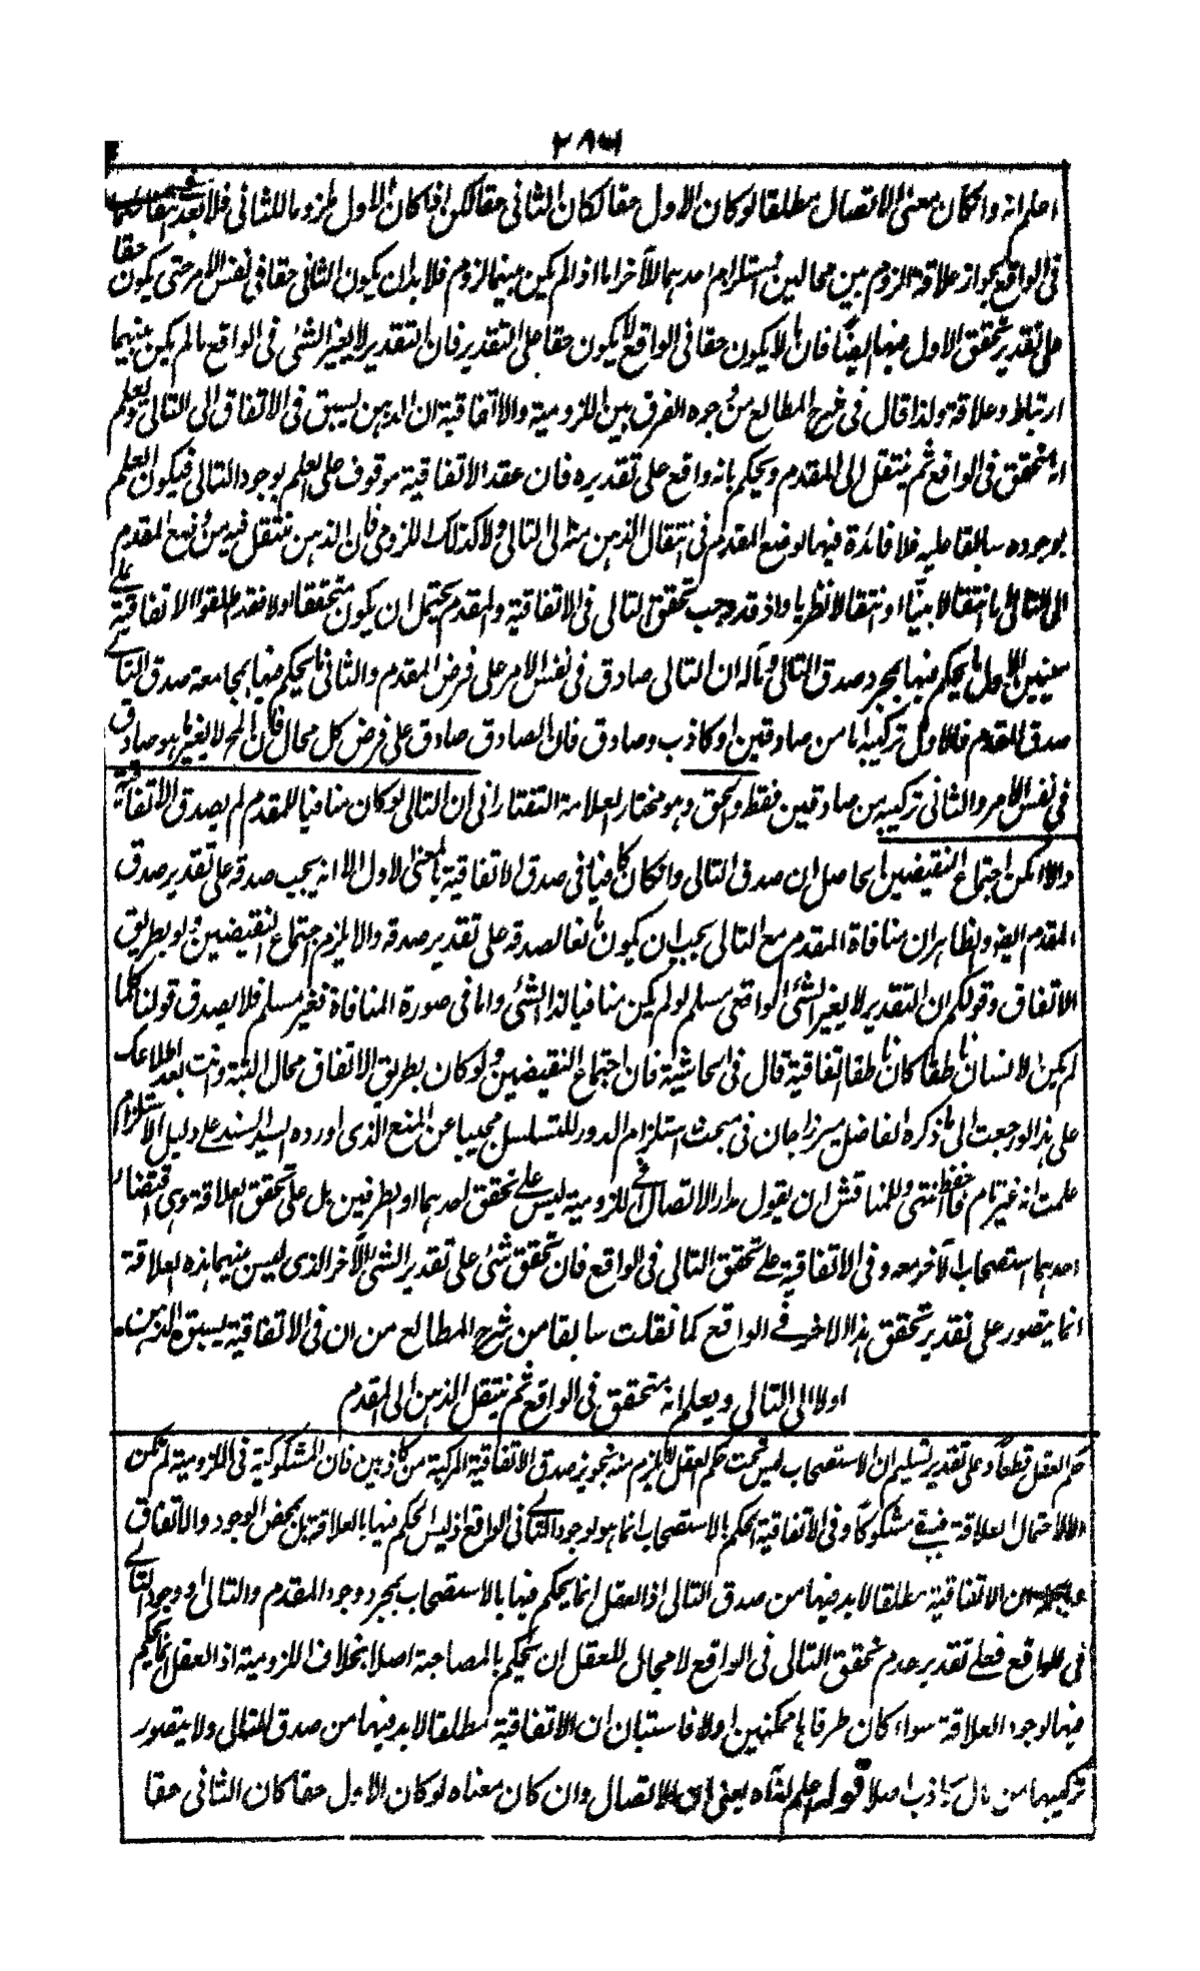 ٢٨٣
اعلم انه وان كان معنى الاتصال مطلقا لو كان الاول حقا لكان الثانى حقا لكن اذا كان الاول ملزوما للثانى فلا
فى الواقع لجواز علاقة اللزوم بين محالين يستلزم احدهما للآخر اما اذا لم يكن بينهما لزوم فلا بد ان يكون الثانى حقا فى نفس الامر حتى يكون حقا
على تقدير تحقق الاول منهما ايضا فان ما لا يكون حقا فى الواقع لا يكون حقا على التقدير فان التقدير لا يغير الشئ فى الواقع ما لم يكن بينهما
ارتباط وعلاقة ولذا قال فى شرح المطالع من وجوه الفرق بين اللزومية والاتفاقية ان الذهن يسبق فى الاتفاق الى التالى ويعلم
انه متحقق فى الواقع ثم ينتقل الى المقدم ويحكم بانه واقع على تقديره فان عقد الاتفاقية موقوف على العلم بوجود التالى فيكون العلم
بوجوده سابقا عليه فلا فائدة فيها لوضع المقدم فى انتقال الذهن منه الى التالى ولا كذلك اللزومى فان الذهن ينتقل فيه من وضع المقدم
الى التالى اما انتقالا بينّا او انتقالا نظريا واذ قد وجب تحقق التالى فى الاتفاقية والمقدم يحتمل ان يكون متحققا او لا فقد اطلقوا الاتفاقية على
معنيين الاول ما يحكم فيها بمجرد صدق التالى ومآله ان التالى صادق فى نفس الامر على فرض المقدم والثانى ما يحكم فيها بمجامعة صدق التالى
صدق المقدم فالاول تركيبها من صادقين او كاذب وصادق فان الصادق صادق على فرض كل محال فان المحال لا يغير ما هو صادق
فى نفس الامر والثانى تركيبه من صادقين فقط والحق وهو مختار العلامة التفتازانى ان التالى لو كان منافيا للمقدم لم يصدق الاتفاقية
والا امكن اجتماع النقيضين الحاصل ان صدق التالى وان كان كافيا فى صدق الاتفاقية بالمعنى الاول الا انه يجب صدقه على تقدير صدق
المقدم ايضو الظاهر ان منافاة المقدم مع التالى يجب ان يكون مانعا لصدقه على تقدير صدقه والا يلزم اجتماع النقيضين ولو بطريق
الاتفاق وقولكم ان التقدير لا يغير الشئ الواقعى مسلم لو لم يكن منافيا لذا الشئ واما فى صورة المنافاة فغير مسلم فلا يصدق قولنا كلما
لم يكن الانسان ناطقا كان ناطقا اتفاقية قال فى الحاشية فان اجتماع النقيضين ولو كان بطريق الاتفاق محال البتة وانت بعد اطلاعك
على هذا لو رجعت الى ما ذكره الفاضل ميرزا جان فى مبحث استلزام الدور للتسلسل مجيبا عن المنع الذى اورده السيد السند على دليل الاستلزام
علمت انه غير تام فاحفظ انتهى وللمناقش ان يقول مدار الاتصال فى اللزومية ليس على تحقق احدهما او الطرفين بل على تحقق العلاقة وهى اقتضاء
احدهما استصحاب الآخر معه وفى الاتفاقية على تحقق التالى فى الواقع فان تحقق شئ على تقدير الشئ الآخر الذى ليس بينهما هذه العلاقة
انما يتصور على تقدير تحقق هذا الآخر فى الواقع كما نقلت سابقا من شرح المطالع من ان فى الاتفاقية يسبق الذهن
اولا الى التالى ويعلم انه متحقق فى الواقع ثم ينتقل الذهن الى المقدم
حكم العقل قطعا وعلى تقدير تسليم ان الاستصحاب ليس تحت حكم العقل لا يلزم منه تجويز صدق الاتفاقية المركبة من كاذبين فان المشكوكية فى اللزومية لم تكن
الا لاحتمال العلاقة فبقى مشكوكا وفى الاتفاقية الحكم بالاستصحاب انما هو لوجود التالى فى الواقع اذ ليس الحكم فيها بالعلاقة بل بمحض الوجود والاتفاق
ان الاتفاقية مطلقا لا بد فيها من صدق التالى اذ العقل انما يحكم فيها بالاستصحاب بمجرد وجود المقدم والتالى او وجود التالى
فى الواقع فعلى تقدير عدم تحقق التالى فى الواقع لا مجال للعقل ان يحكم بالمصاحبة اصلا بخلاف اللزومية اذ العقل انما يحكم
فيها لوجود العلاقة سواء كان طرفاها ممكنين او لا فاستبان ان الاتفاقية مطلقا لا بد فيها من صدق التالى ولا يتصور
تركيبها من تال كاذب اصلا قوله اعلم انه آه يعنى ان الاتصال وان كان معناه لو كان الاول حقا كان الثانى حقا